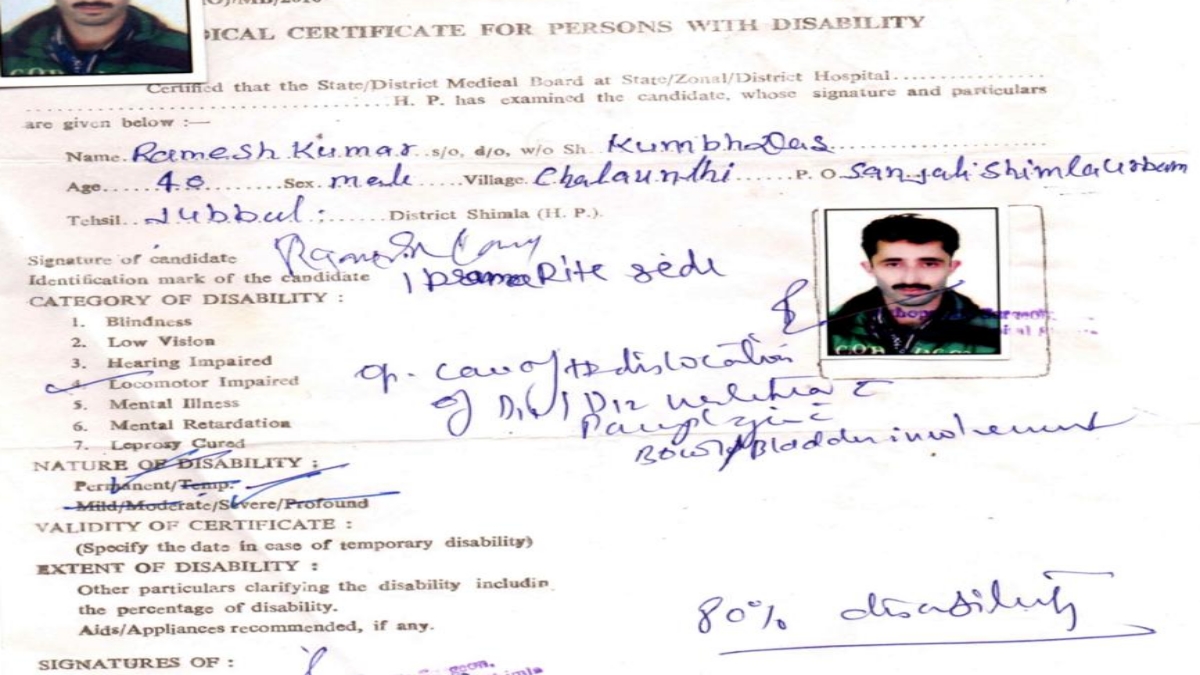 DICAL CERTIFICATE FOR PERSONS WITH DISABILITY
Certified that the State/District Medical Board at State/Zonal/District Hospital
H. P. has examined the candidate, whose signature and particulars
are given below :—
Name. Ramesh Kumar s/o, d/o, w/o Sh. Kumbh Das
Age 40 Sex male Village. Chalaunthi P. O. Sanjali Shimla Urban
Tehsil Jubbal : District Shimla (H. P.).
Signature of candidate
Identification mark of the candidate 1 Rite side
CATEGORY OF DISABILITY :
1. Blindness
2. Low Vision
3. Hearing Impaired
4. Locomotor Impaired
5. Mental Illness
6. Mental Retardation
7. Leprosy Cured
op. case of # dislocation
of D11 / D12
Bowel/Bladder involvement
NATURE OF DISABILITY :
Permanent/Temp.
Mild/Moderate/Severe/Profound
VALIDITY OF CERTIFICATE :
(Specify the date in case of temporary disability)
EXTENT OF DISABILITY :
Other particulars clarifying the disability includin
the percentage of disability.
80% disability
Aids/Appliances recommended, if any.
SIGNATURES OF :